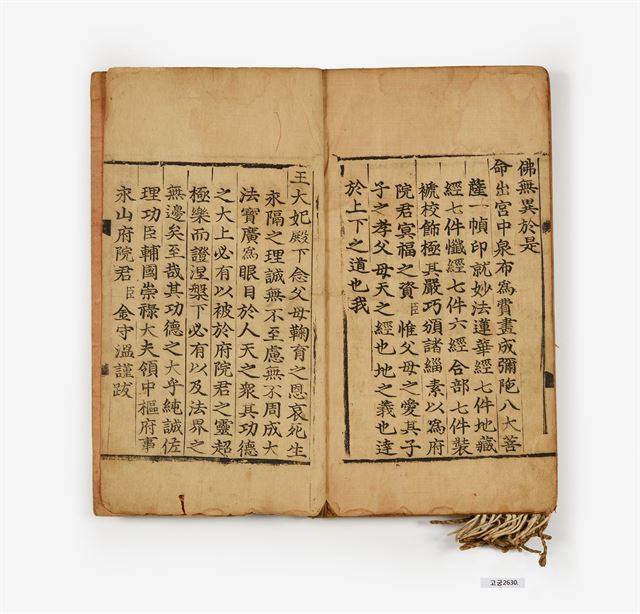 佛無異於是
命出宮中泉布為費畫成彌陁八大菩
薩一幀印就妙法蓮華經七件地藏
經七件懺經七件六經合部七件裝
褫校飾極其嚴巧頒諸緇素以為府
院君冥福之資臣惟父母之愛其子
子之孝父母天之經也地之義也達
於上下之道也我
王大妃殿下念父母鞠育之恩哀死生
永隔之理誠無不至慮無不周成大
法寶廣為眼目於人天之衆其功德
之大上必有以被於府院君之靈超
極樂而證涅槃下必有以及法界之
無邊矣至哉其功德之大乎純誠佐
理功臣輔國崇祿大夫領中樞府事
永山府院君臣金守溫謹跋
고궁2630.